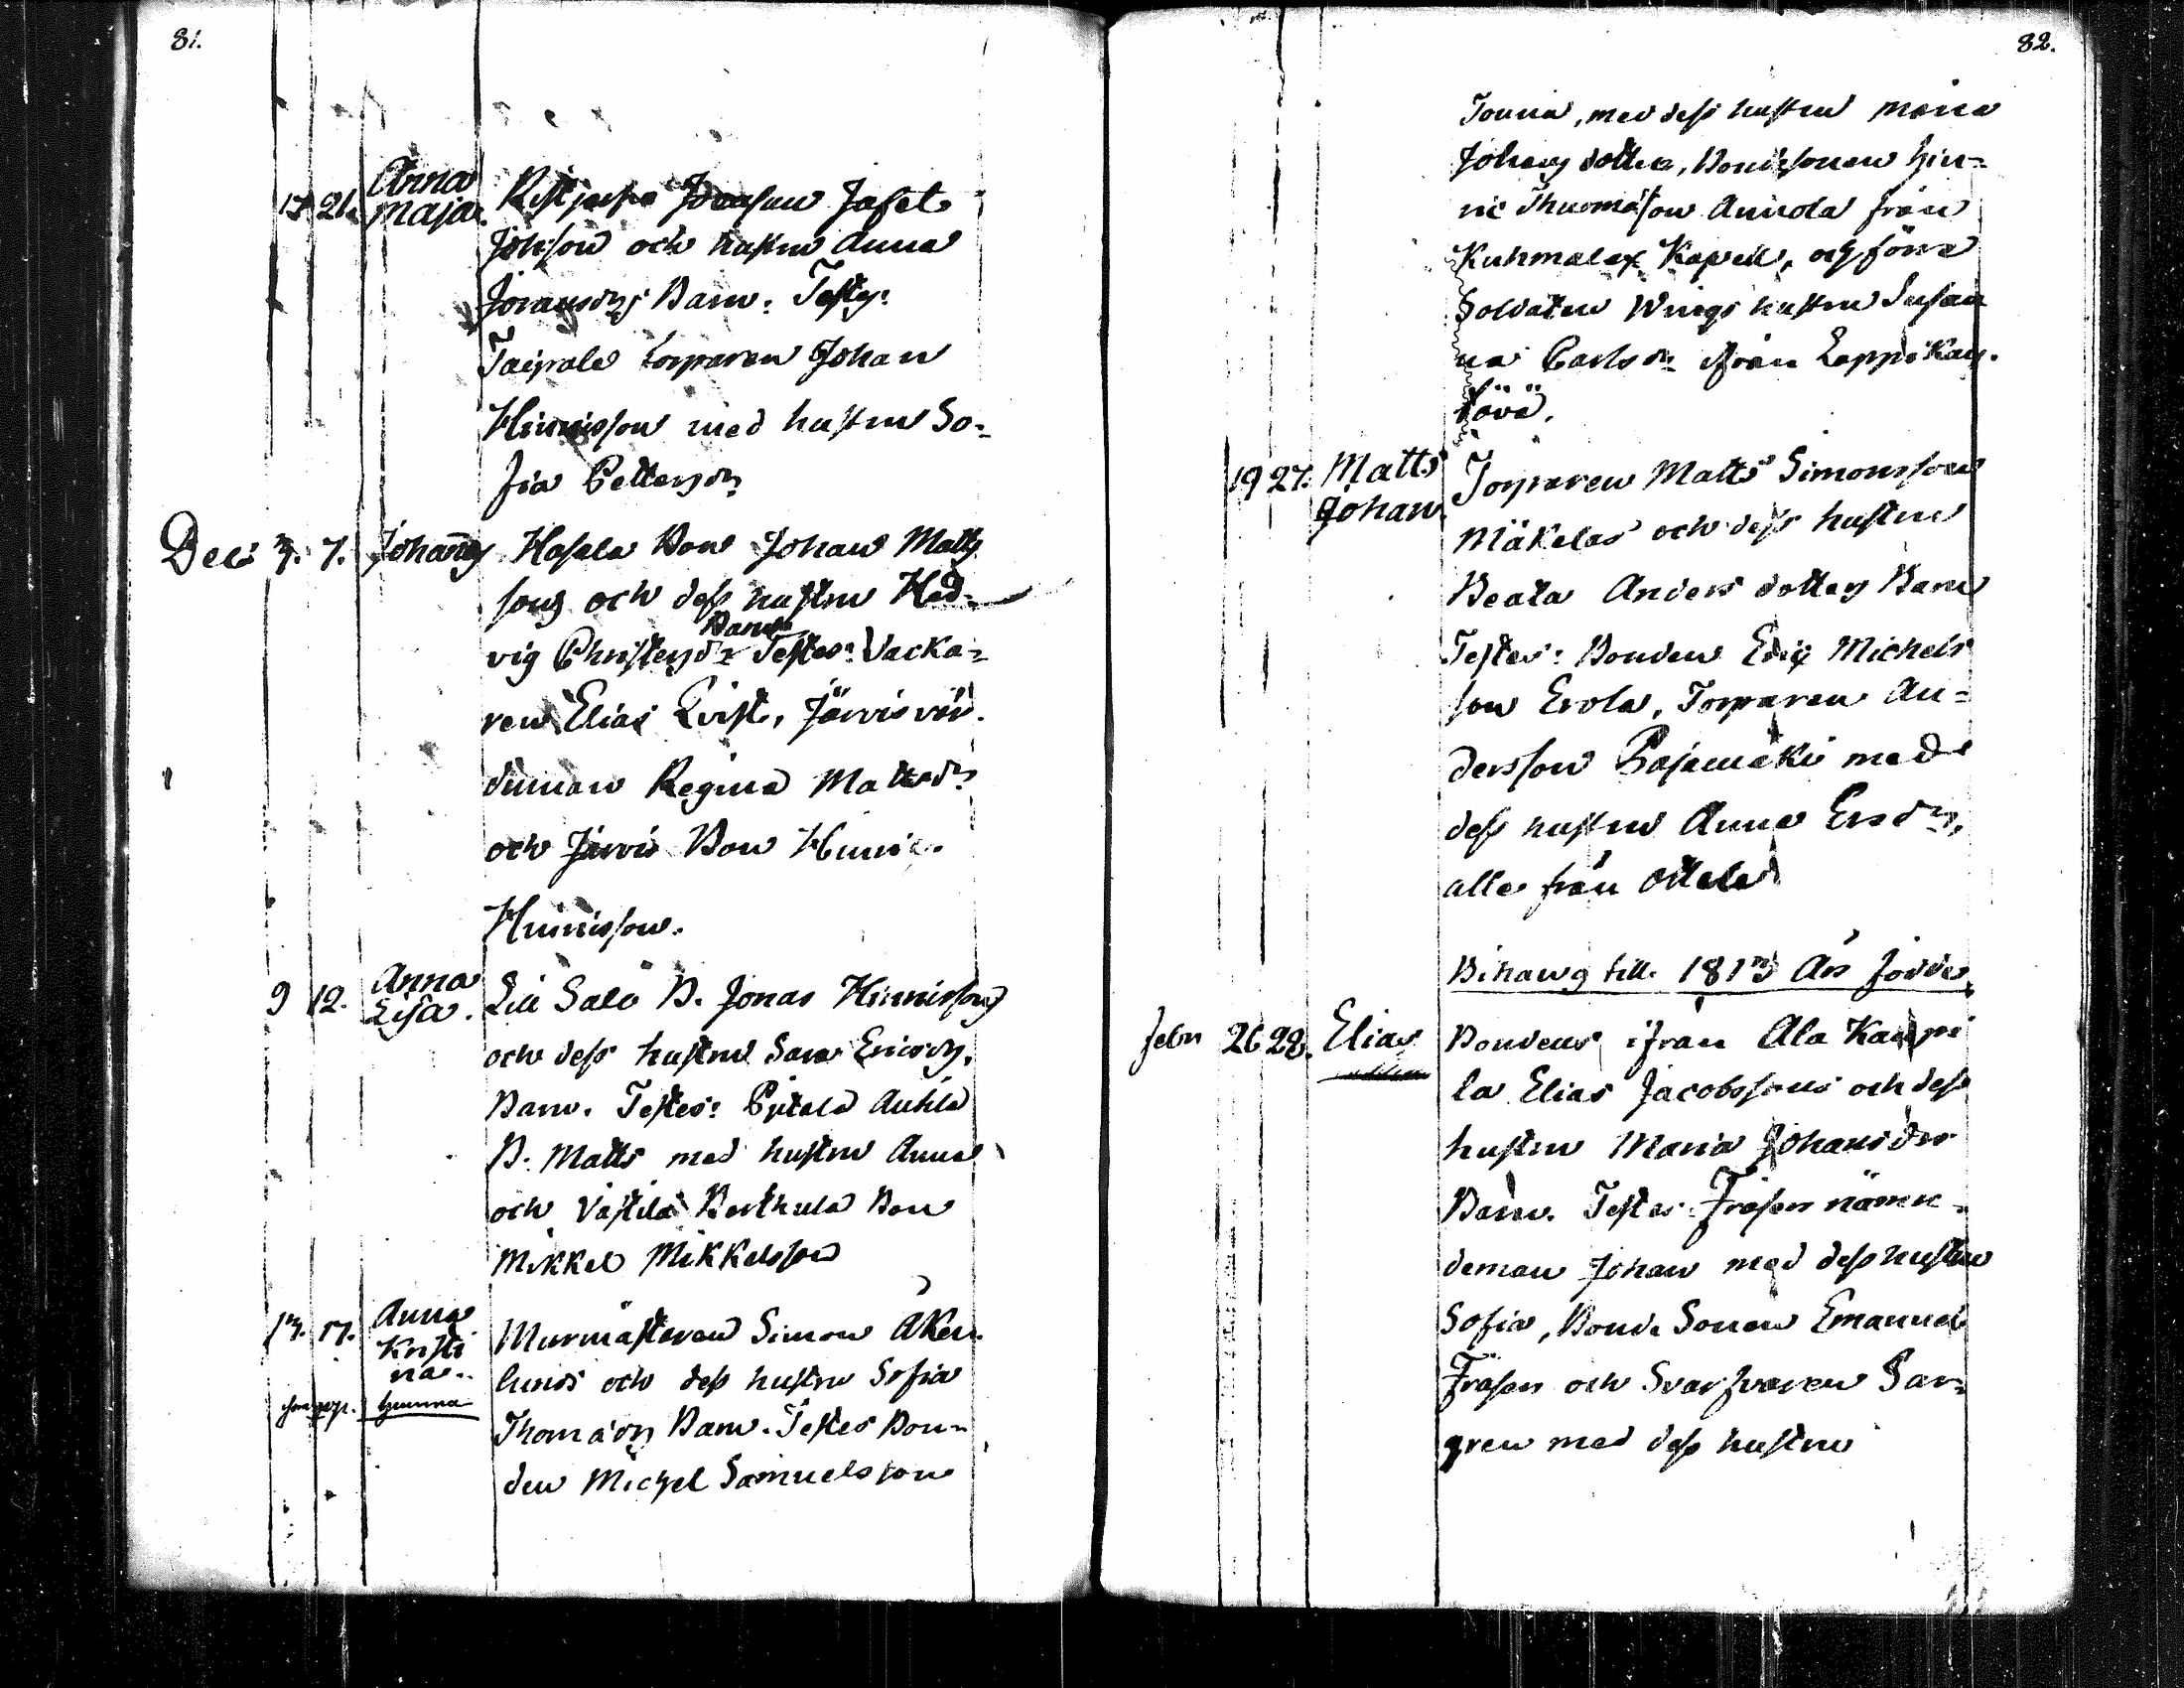 81.
17 21. Anna Maja. Jafet
Johsson och hustru Anna
Jönansdrs Barn. Testes:
Taipale torparen Johan
Hinrisson med hustru So-
fia Pettersdr
Dec 3. 7. Johannes Hasala Bon Johan Matts
sons och dess hustru Hed-
vig Christersdr Barn Testes: Vacka-
ren Elias Qvist, Järvis
Regina Mattsdr
och Järvis Bon Hinric
Hinrisson.
9 12. Anna Lisa. Lill Salo B. Jonas Hinrissons
och dess hustru Sara Ericsdrs
Barn. Testes: Anttila
B. Matts med hustru Anna
och Västilä Berthula Bon
Mikkel Mikkelsson
13. 17. Anna Kristina. Murmästaren Simon Åker-
lunds och dess hustru Sofia
Thomasdrs Barn. Testes Bon-
den Michel Samuelsson
82.
med dess hustru Maria
Johans dotter, Bondsonen Hin-
ric Thomasson Annola från
Kuhmalax Kapell, och förra
Soldaten Wings hustru Susan
na Carlsdr ifrån Leppäkas-
19 27. Matts Johan. Torparen Matts Simonsson
Mäkeläs och dess hustru
Beata Anders dotters Barn
Testes: Bonden Eric Michels
son Erola, Torparen An-
dersson Pajamäki med
dess hustru Anna Ersdr,
alla från Ottala
Bihang till 1813 Års födde
Febr 26 28. Elias Bondens ifrån Ala Kauppi
la Elias Jacobssons och dess
hustru Maria Johansdrs
Barn. Testes: Frasen nämn-
deman Johan med dess hustru
Sofia, Bonde Sonen Emanuel
Frasen och Svarfvaren San-
gren med dess hustru